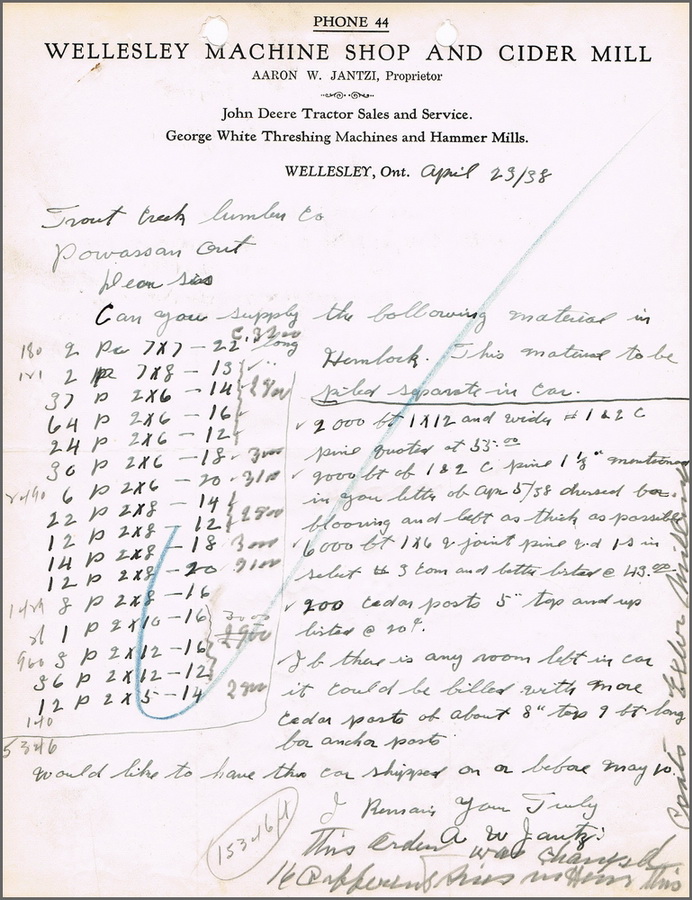 PHONE 44
WELLESLEY MACHINE SHOP AND CIDER MILL
AARON W. JANTZI, Proprietor
John Deere Tractor Sales and Service.
George White Threshing Machines and Hammer Mills.
WELLESLEY, Ont. April 23/38
Trout Creek lumber Co
Powassan Ont
Dear Sirs
Can you supply the following material in
Hemlock. This material to be
piled separate in car.
180 2 Pc 7x7 - 22 long
2 pc 7x8 - 13
37 P 2x6 - 14
64 P 2x6 - 16
24 P 2x6 - 12
30 P 2x6 - 18
6 P 2x6 - 20
22 P 2x8 - 14
12 P 2x8 - 12
14 P 2x8 - 18
12 P 2x8 - 20
8 P 2x8 - 16
1 P 2x10 - 16
3 P 2x12 - 16
36 P 2x12 - 12
12 P 2x5 - 14
140
5346
2000 ft 1x12 and wider # 1 & 2 C
pine quoted at 55.00
2000 ft of 1 & 2 C pine 1 1/8" mentioned
in you letter of Apr 5/38 dressed for
flooring and left as thick as possible
6000 ft 1x6 v joint pine
select # 3 Com and better listed @ 43.00
200 cedar posts 5" top and up
listed @ 20¢.
If there is any room left in car
it could be billed with more
cedar posts of about 8" top 9 ft long
for anchor posts
would like to have this car shipped on or before may 10.
I Remain Your Truly
A W Jantzi
15346 ft
This order was changed